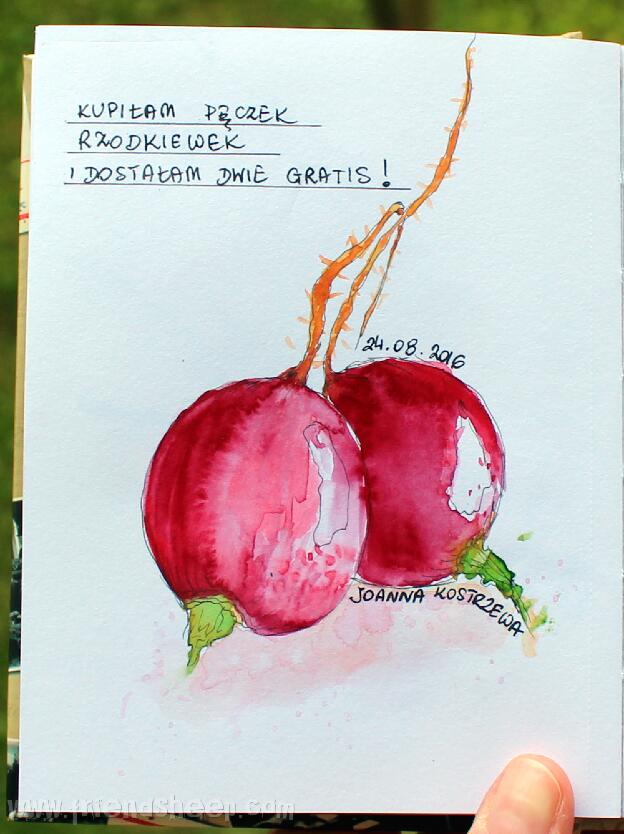 KUPIŁAM PĘCZEK
RZODKIEWEK
I DOSTAŁAM DWIE GRATIS!
24.08.2016
JOANNA KOSTRZEWA
www.friendsheep.com